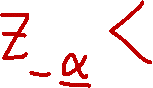 z_α <